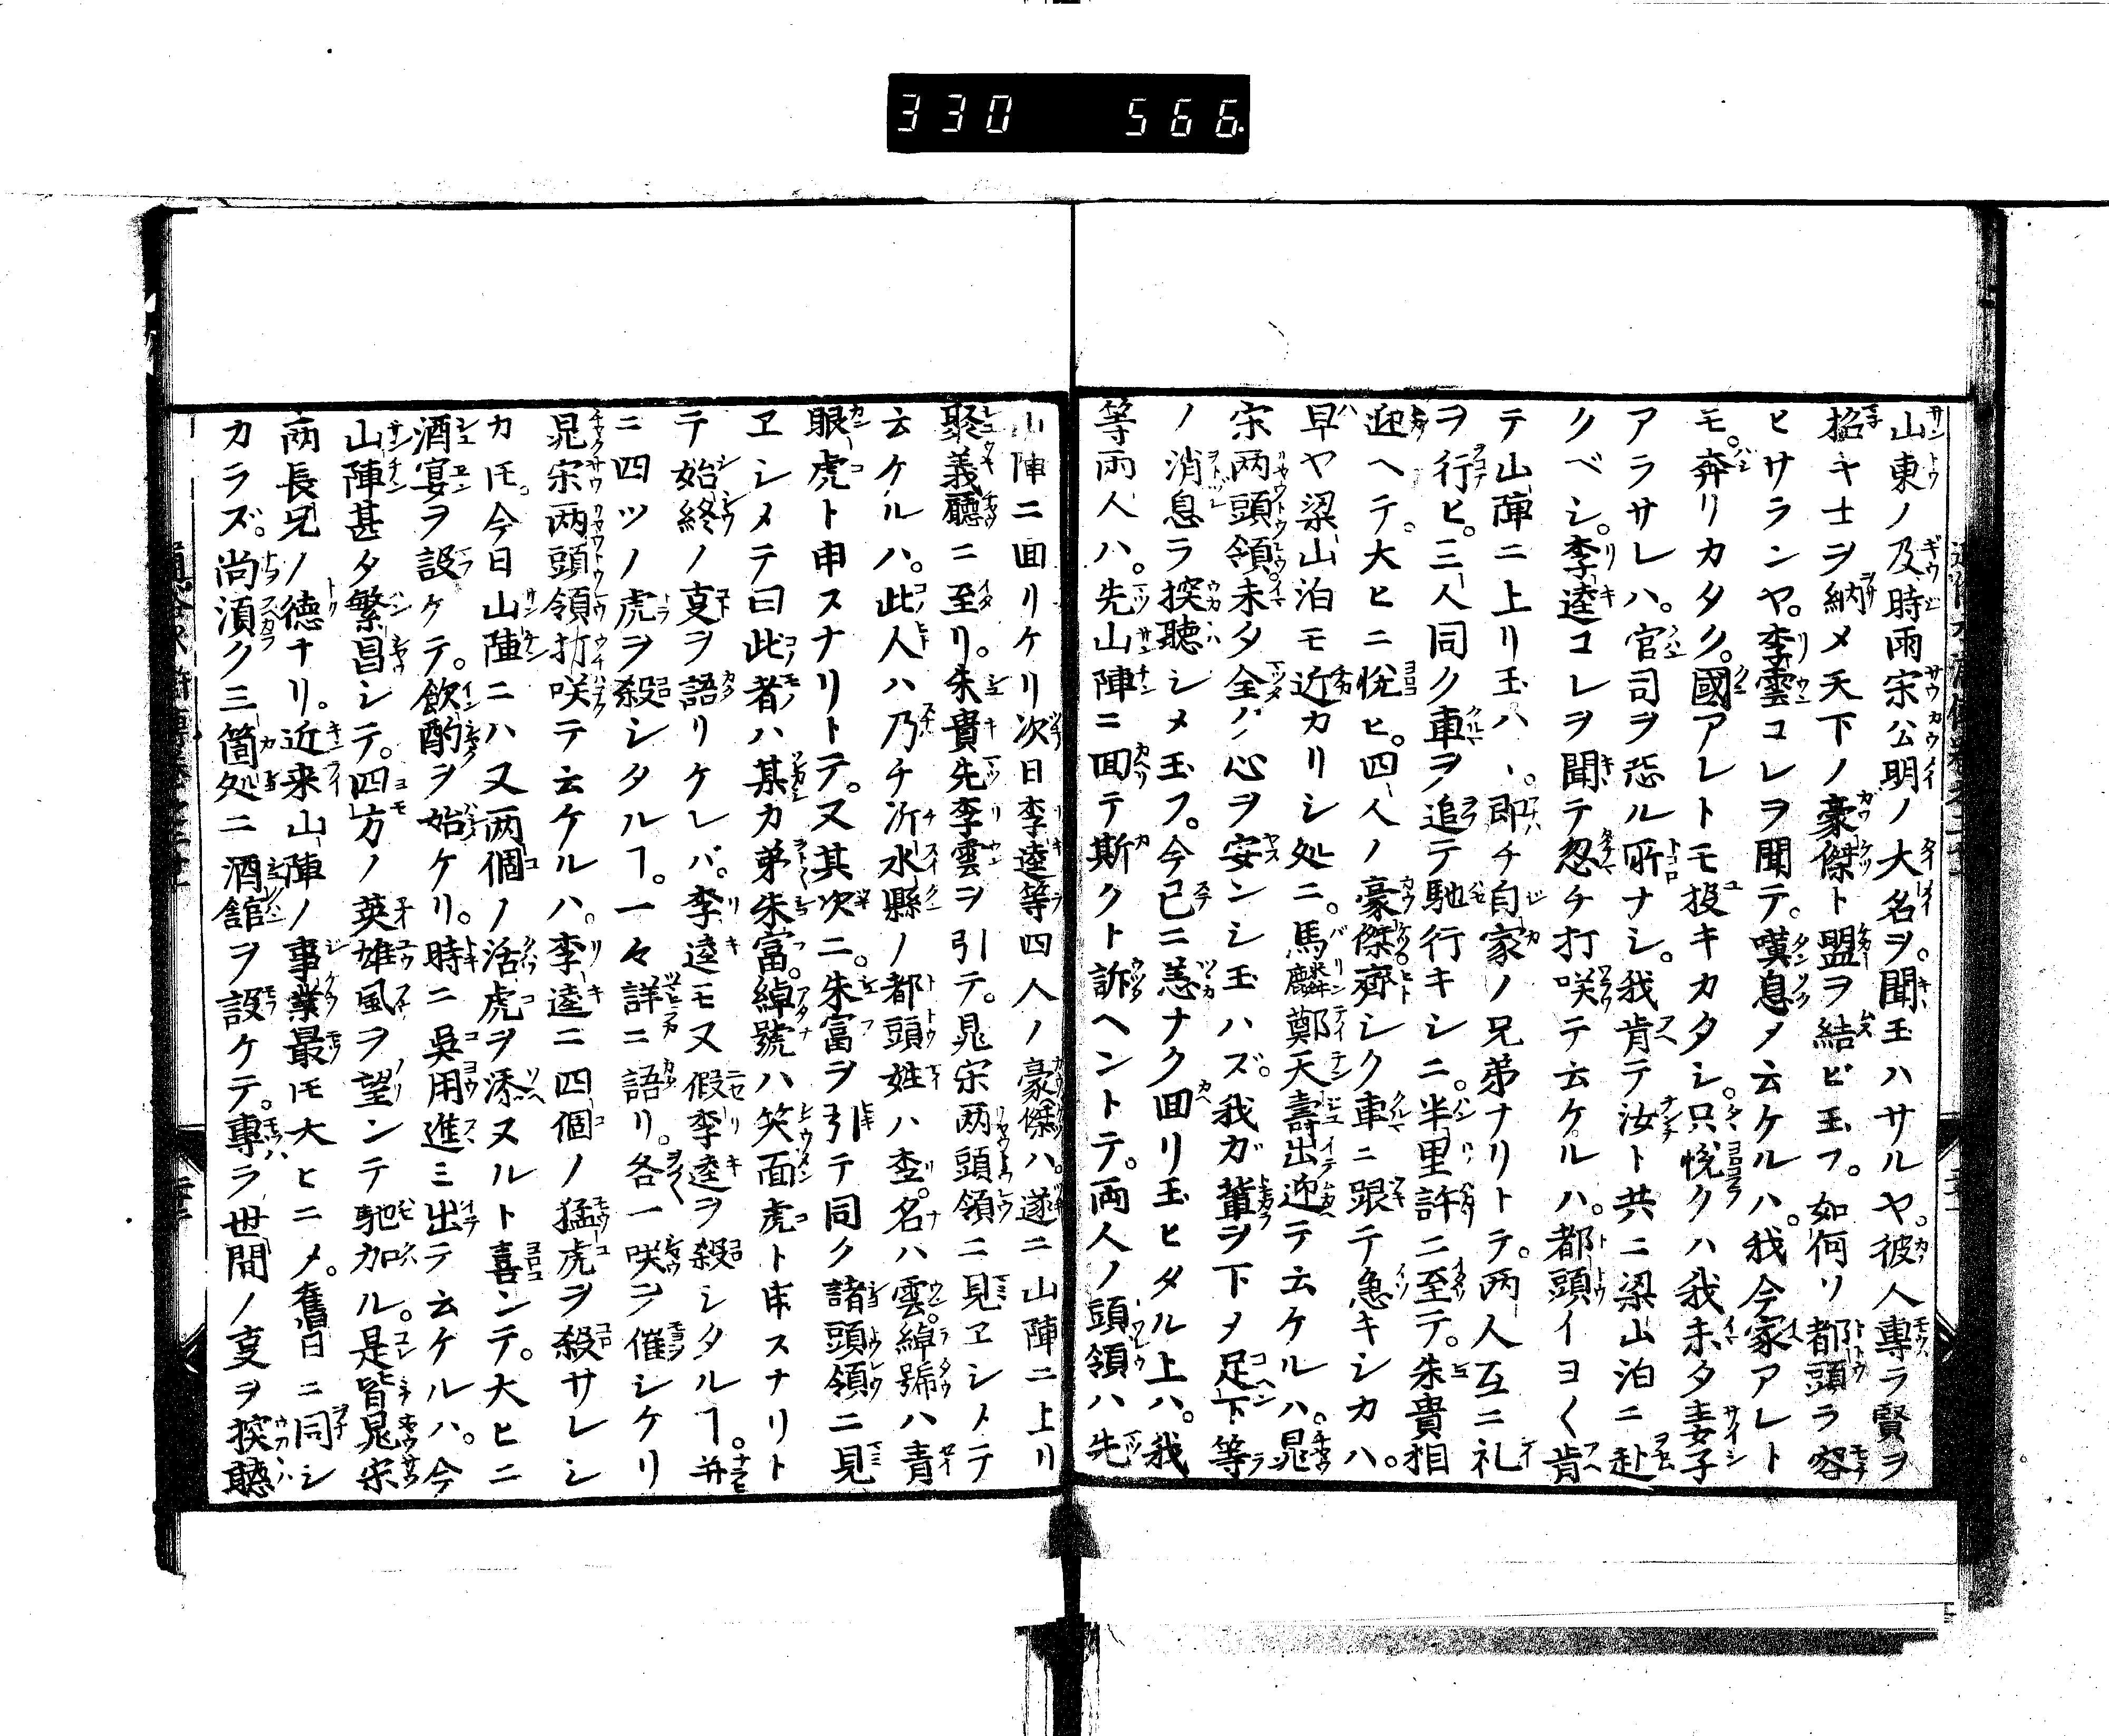 330 566
山東ノ及時雨宋公明ノ大名ヲ。聞玉ハサルヤ。彼人專ラ賢ヲ
招キ士ヲ納メ天下ノ豪傑ト盟ヲ結ビ玉フ。如何ソ都頭ラ容
ヒサランヤ。李雲コレヲ聞テ。嘆息メ云ケルハ。我今家アレト
モ。奔リカタク。國アレトモ投キカタシ。只悦クハ我未タ妻子
アラサレハ。官司ヲ恐ル所ナシ。我肯テ汝ト共ニ梁山泊ニ赴
クベシ。李逵コレヲ聞テ忽チ打咲テ云ケルハ。都頭イヨ〱肯
テ山陣ニ上リ玉ハヽ。即チ自家ノ兄弟ナリトテ。两人互ニ礼
ヲ行ヒ。三人同ク車ヲ追テ馳行キシニ。半里許ニ至テ。朱貴相
迎ヘテ。大ヒニ悦ヒ。四人ノ豪傑齊シク車ニ跟テ急キシカハ。
早ヤ梁山泊モ近カリシ処ニ。馬麟鄭天壽出迎テ云ケルハ。晁
宋两頭領。未タ全ク心ヲ安ンシ玉ハズ。我ガ輩ヲ下メ足下等
ノ消息ラ探聽シメ玉フ。今已ニ恙ナク囬リ玉ヒタル上ハ。我
等兩人ハ。先山陣ニ囬テ斯クト訴ヘントテ。両人ノ頭領ハ先
山陣ニ囬リケリ次日李逵等四人ノ豪傑ハ。遂ニ山陣ニ上リ
聚義廳ニ至リ。朱貴先李雲ヲ引テ。晁宋两頭領ニ見ヱシメテ
云ケルハ。此人ハ乃チ沂水縣ノ都頭姓ハ李。名ハ雲。綽號ハ青
眼虎ト申スナリトテ。又其次ニ。朱富ヲ引テ同ク諸頭領ニ見
ヱシメテ曰此者ハ某カ弟朱富。綽號ハ笑面虎ト申スナリト
テ始終ノ叓ヲ語リケレバ。李逵モ又假李逵ヲ殺シタルヿ。并
ニ四ツノ虎ヲ殺シタルヿ。一々詳ニ語リ。各一咲ヲ催シケリ
晁宋两頭領打咲テ云ケルハ。李逵ニ四個ノ猛虎ヲ殺サレシ
カ𪜈。今日山陣ニハ又两個ノ活虎ヲ添ヌルト喜ンテ。大ヒニ
酒宴ヲ設ケテ。飲酌ヲ始ケリ。時ニ吳用進ミ出テ云ケルハ。今
山陣甚タ繁昌シテ。四方ノ英雄風ヲ望ンテ馳加ル。是皆晁宋
两長兄ノ德ナリ。近来山陣ノ事業最モ大ヒニメ。舊日ニ同シ
カラズ。尚須ク三箇処ニ酒舘ヲ設ケテ。專ラ世間ノ叓ヲ探聽